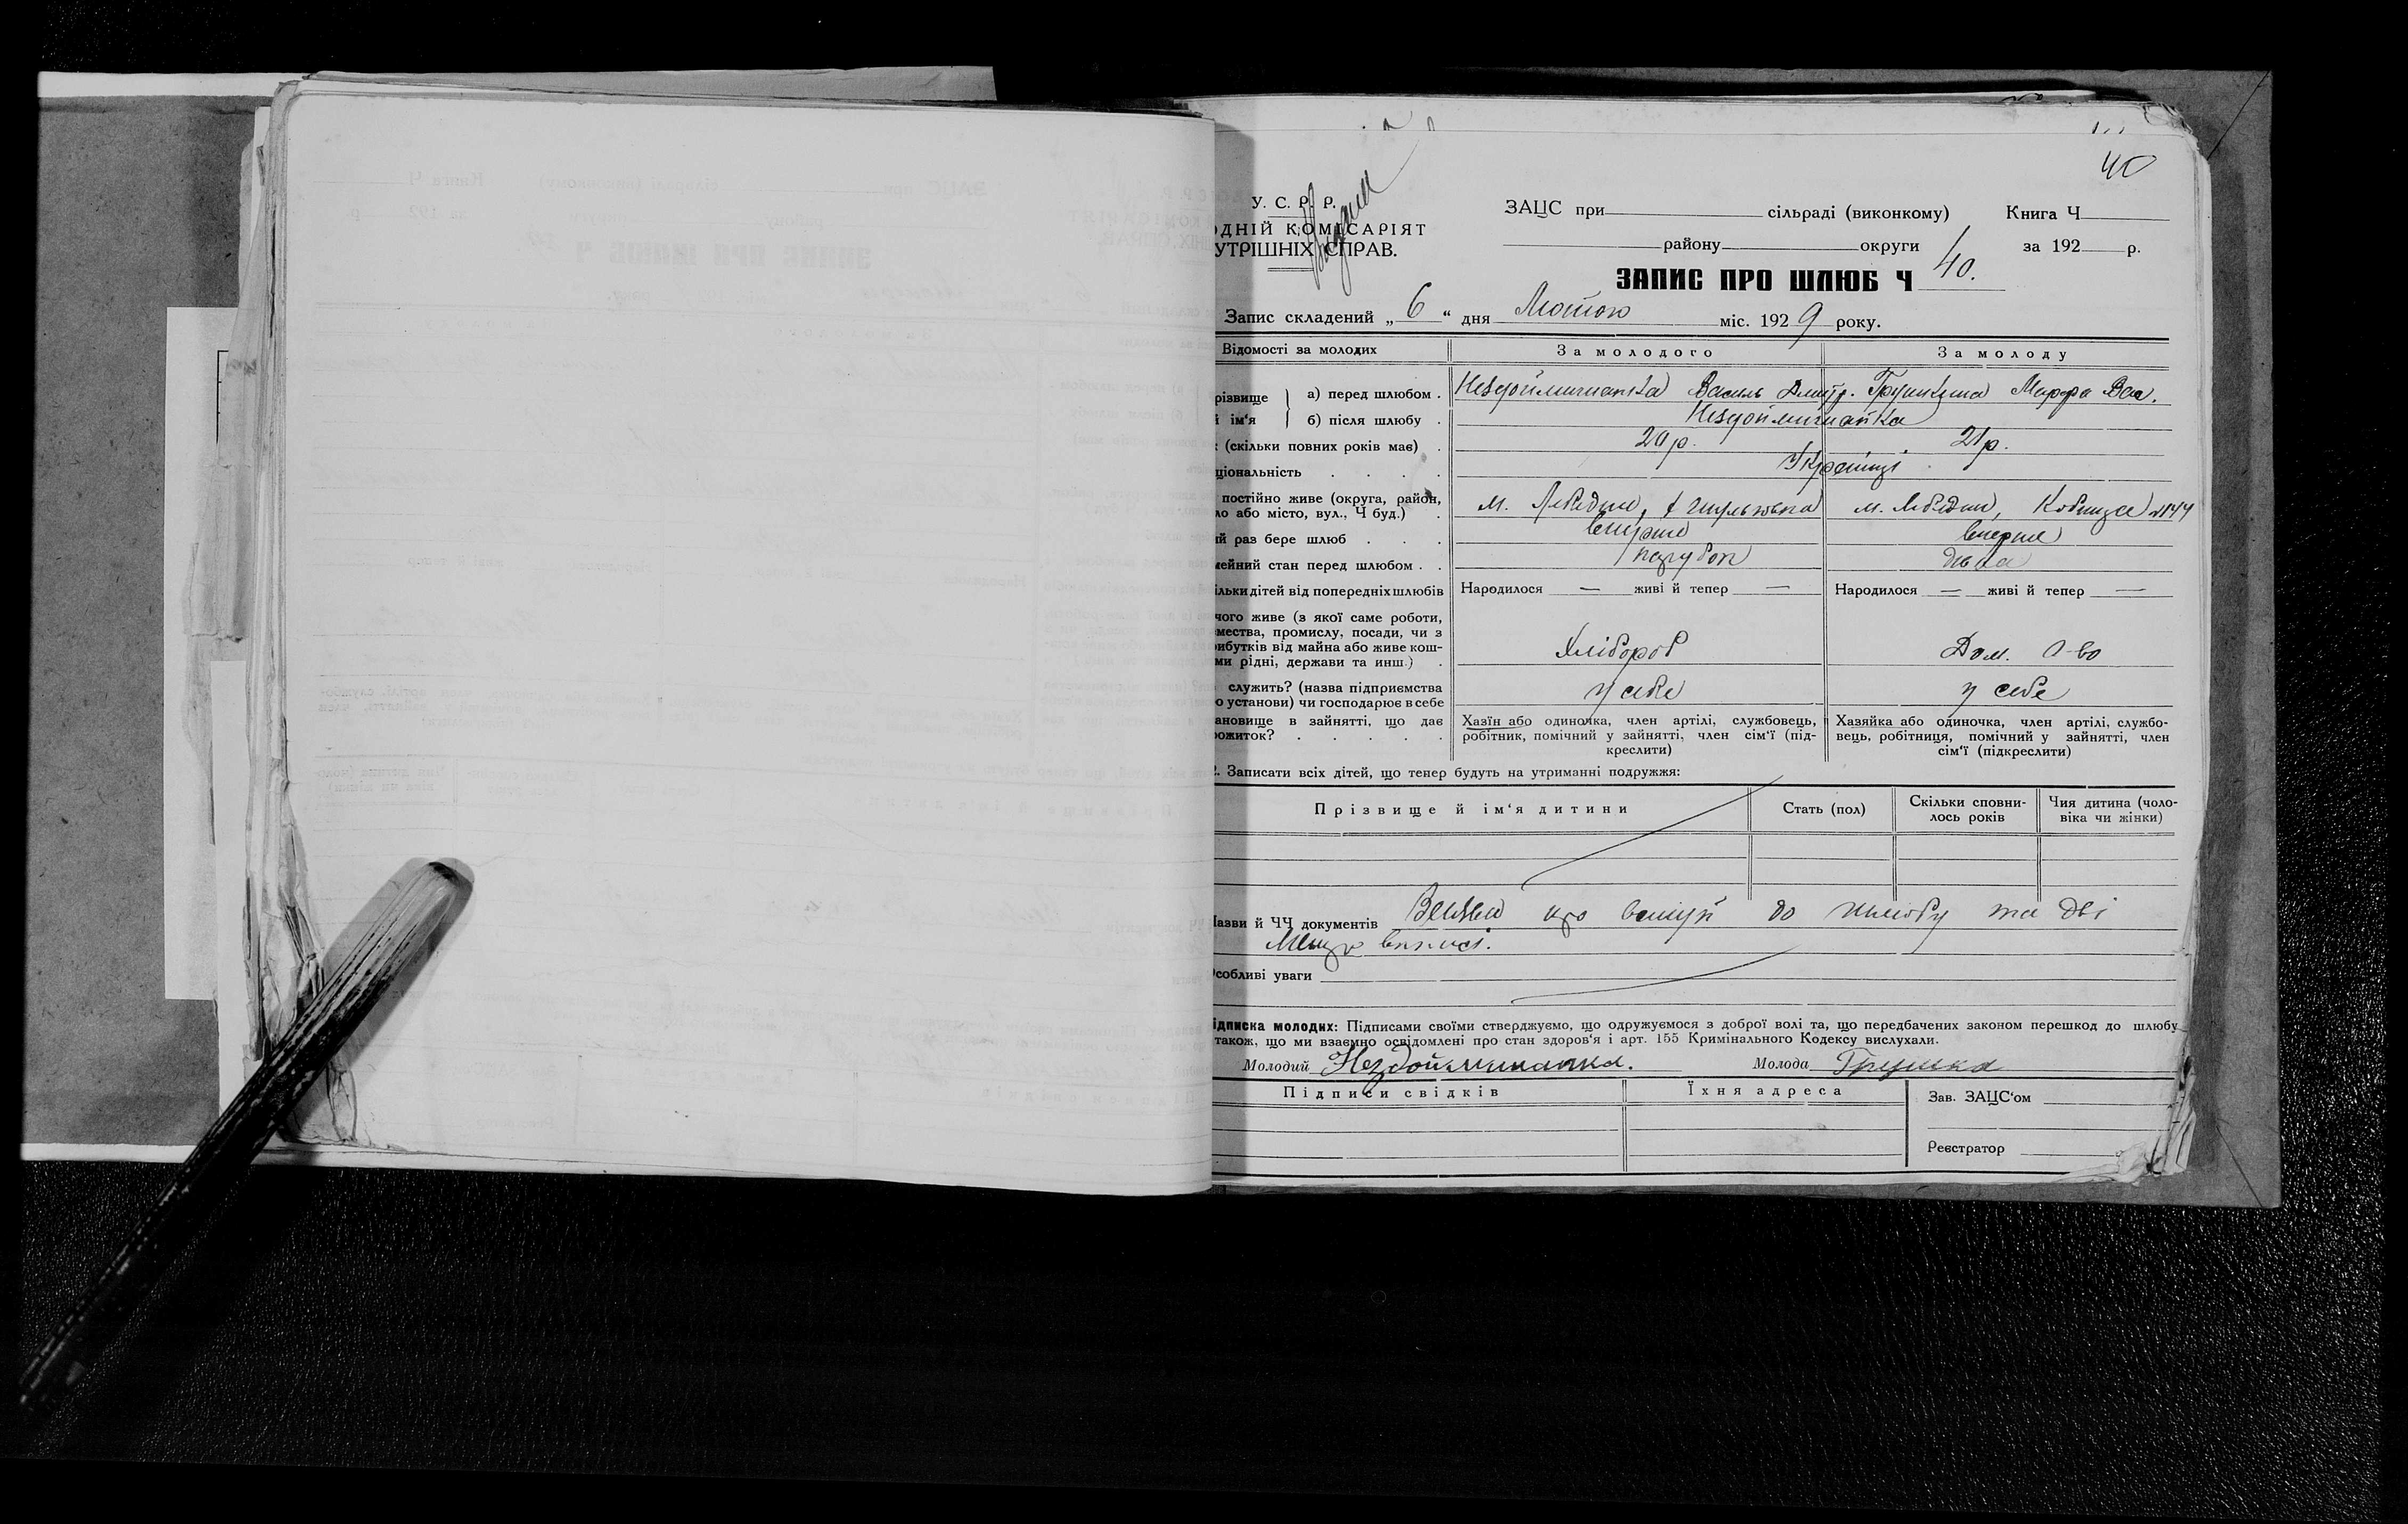 40
У. С. Р. Р.
ОДНІЙ КОМІСАРІЯТ
УТРІШНІХ СПРАВ.
ЗАЦС при сільраді (виконкому) Книга Ч
району округи за 192 р.
ЗАПИС ПРО ШЛЮБ Ч 40.
Запис складений „ 6 “ дня Лютого міс. 192 9 року.
Відомості за молодих За молодого За молоду
різвище а) перед шлюбом . Нездойминапка Василь Дмитр. Грушкина Марфа Вас.
й ім'я б) після шлюбу . Нездойминапка
(скільки повних років має) . 20 р. 21 р.
ціональність . . . . Українці
постійно живе (округа, район, м. Лебедин, м. Лебедин, Кобища №144
ло або місто, вул., Ч буд.) .
ий раз бере шлюб . . . вперше вперше
мейний стан перед шлюбом . . парубок дівка
ільки дітей від попередніх шлюбів Народилося — живі й тепер — Народилося — живі й тепер —
чого живе (з якої саме роботи,
мества, промислу, посади, чи з
рибутків від майна або живе кош- Хлібороб Дом. г-во
ми рідні, держави та инш.) .
служить? (назва підприємства у себе у себе
о установи) чи господарює в себе
ановище в зайнятті, що дає Хазїн або одиночка, член артілі, службовець, Хазяйка або одіночка, член артілі, службо-
рожиток? . . . . . робітник, помічний у зайнятті, член сім'ї (під- вець, робітниця, помічний у зайнятті, член
креслити) сім'ї (підкреслити)
2. Записати всіх дітей, що тепер будуть на утриманні подружжя:
Прізвище й ім'я дитини Стать (пол) Скільки сповни- Чия дитина (чоло-
лось років віка чи жінки)
Назви й ЧЧ документів Заява про вступ до шлюбу та дві
виписі.
Особливі уваги
ідписка молодих: Підписами своїми стверджуємо, що одружуємося з доброї волі та, що передбачених законом перешкод до шлюбу
також, що ми взаємно освідомлені про стан здоров'я і арт. 155 Кримінального Кодексу вислухали.
Молодий Нездойминапка. Молода Грушка
Підписи свідків Їхня адреса Зав. ЗАЦС'ом
Реєстратор